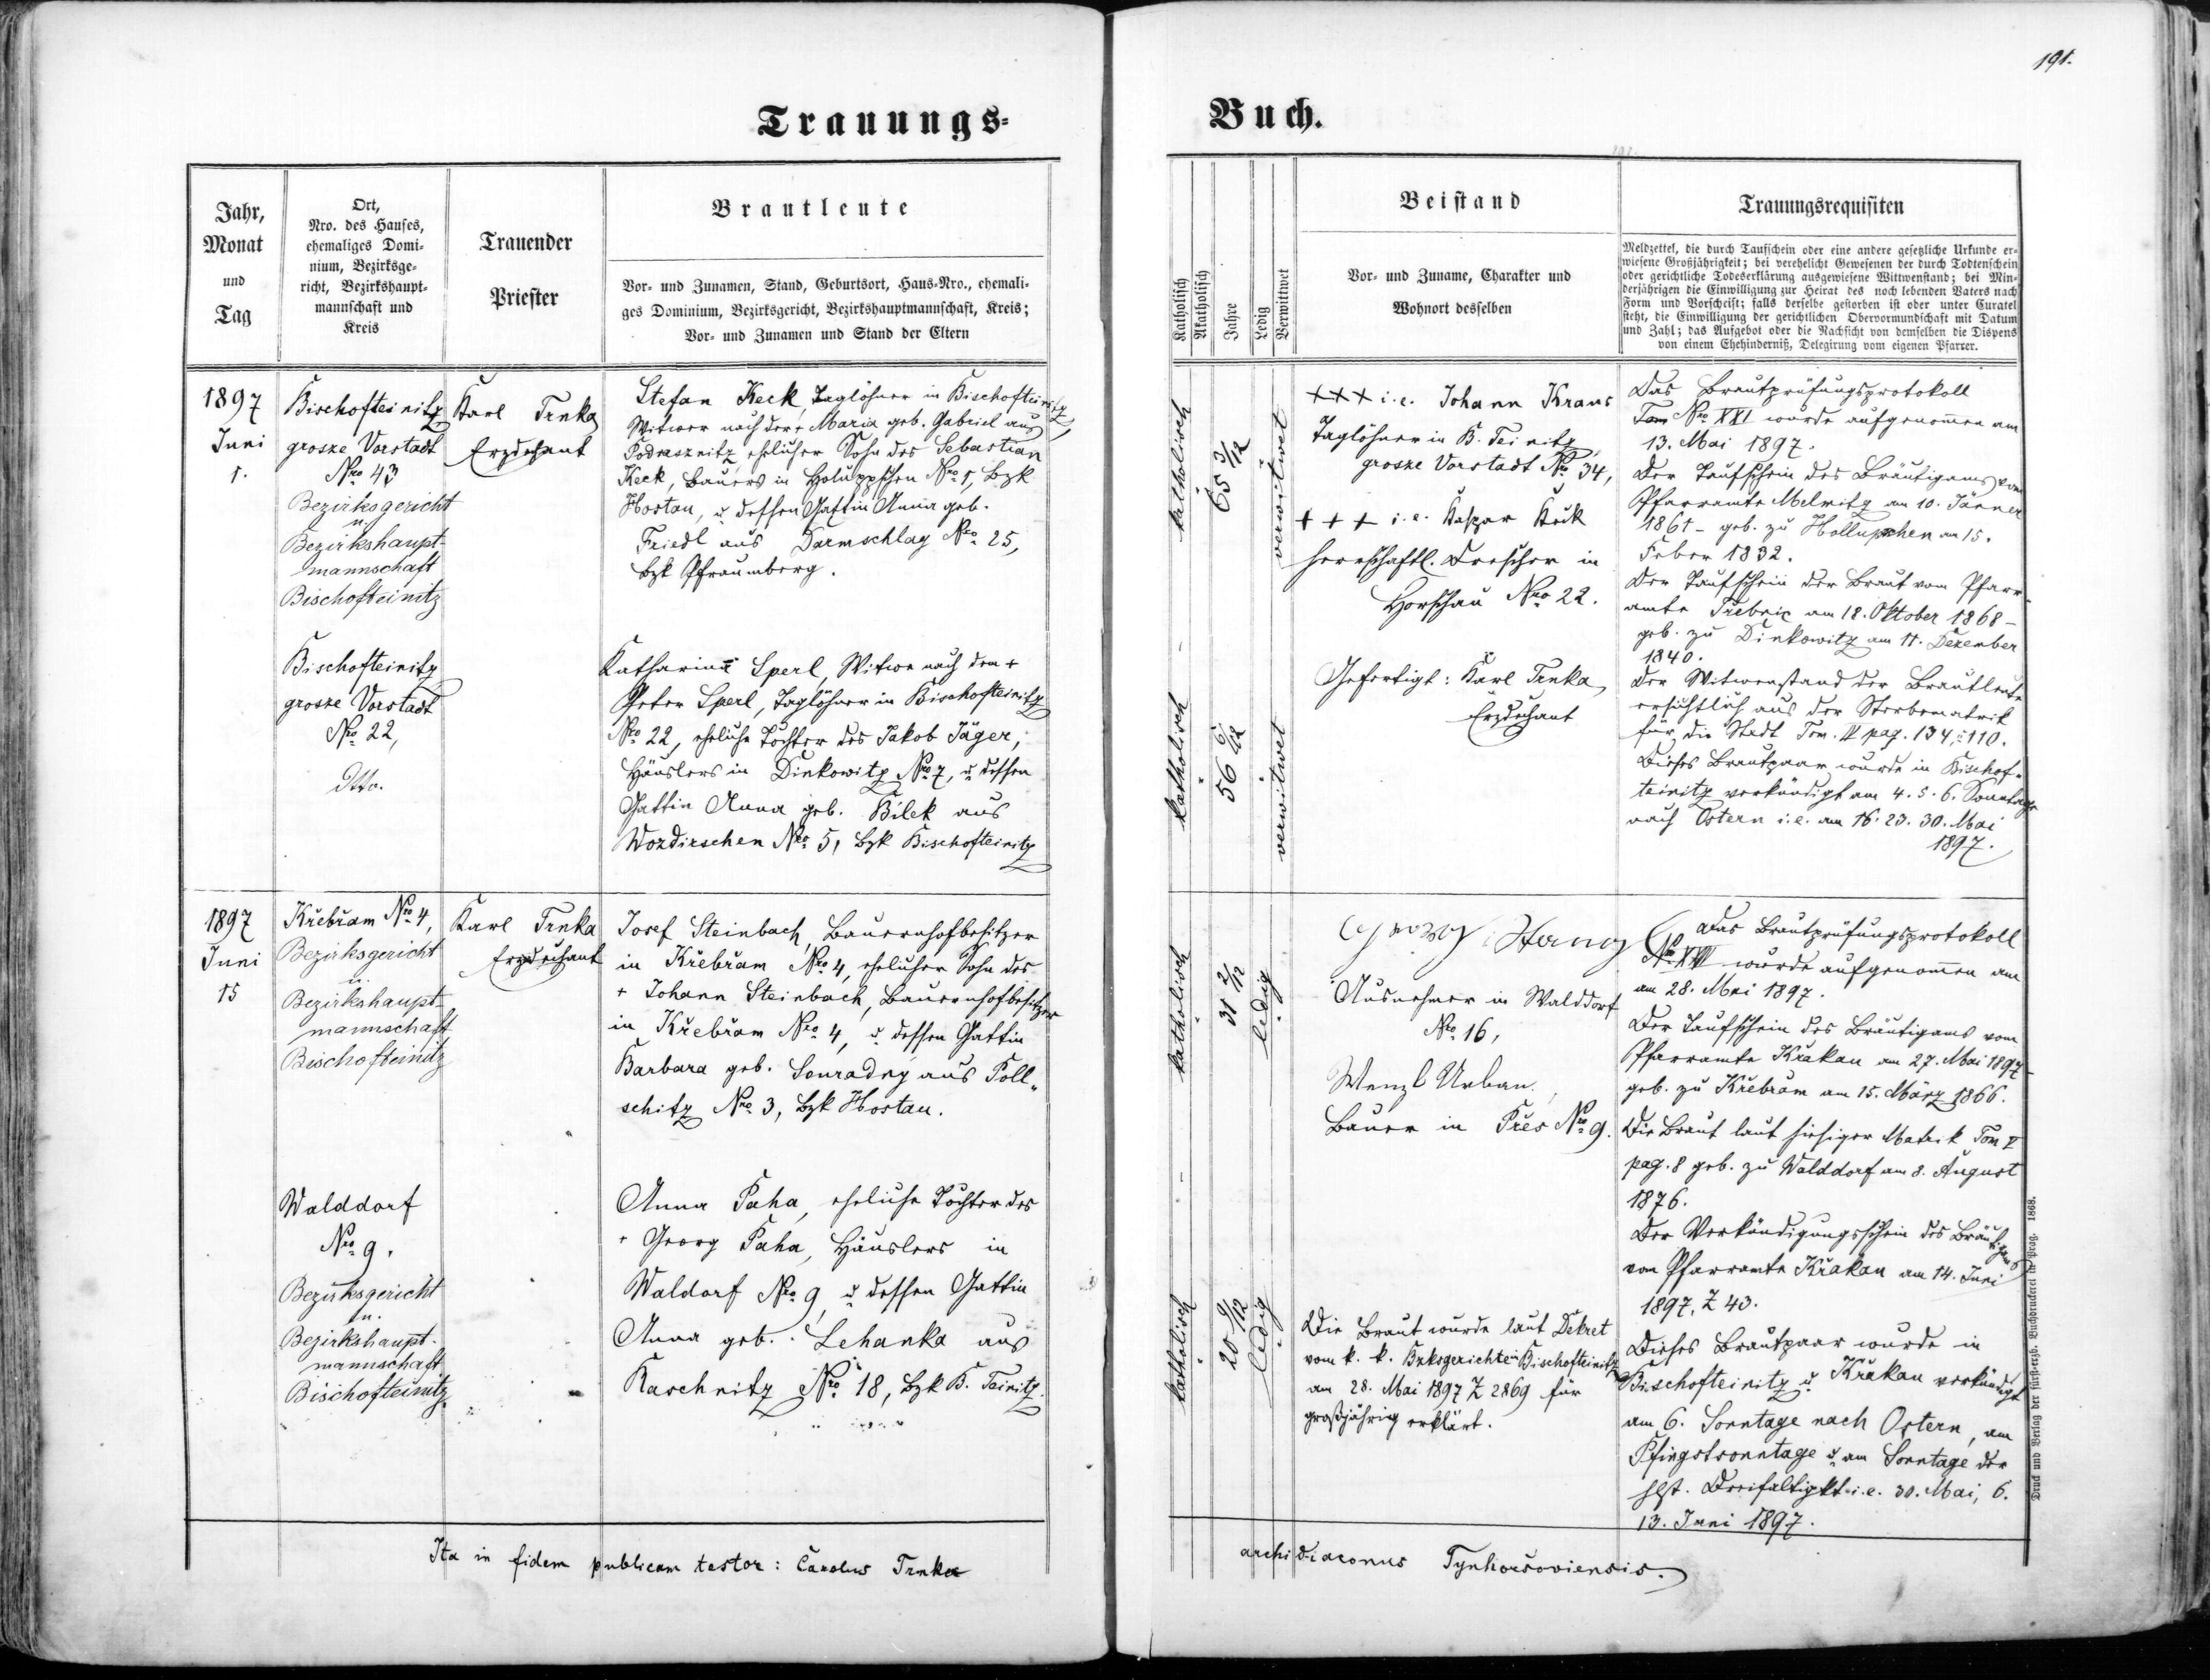 191.
Trauungs-
Buch.
Jahr,
Monat
und
Tag
Ort,
Nro. des Hauses,
ehemaliges Domi-
nium, Bezirksge-
richt, Bezirkshaupt-
mannschaft und
Kreis
Trauender
Priester
Brautleute
Vor- und Zunamen, Stand, Geburtsort, Haus-Nro., ehemali-
ges Dominium, Bezirksgericht, Bezirkshauptmannschaft, Kreis;
Vor- und Zunamen und Stand der Eltern
Katholisch
Akatholisch
Jahre
Ledig
Verwittwet
Beistand
Vor- und Zuname, Charakter und
Wohnort desselben
Trauungsrequisiten
Meldzettel, die durch Taufschein oder eine andere gesetzliche Urkunde er-
wiesene Großjährigkeit; bei verehelicht Gewesenen der durch Todtenschein
oder gerichtliche Todeserklärung ausgewiesene Wittwenstand; bei Min-
derjährigen die Einwilligung zur Heirat des noch lebenden Vaters nach
Form und Vorschrift; falls derselbe gestorben ist oder unter Curatel
steht, die Einwilligung der gerichtlichen Obervormundschaft mit Datum
und Zahl; das Aufgebot oder die Nachsicht von demselben die Dispens
von einem Ehehinderniß, Delegirung vom eigenen Pfarrer.
1897
Juni
1.
Bischofteinitz
grosze Vorstadt
Nro 43
Bezirksgericht
u.
Bezirkshaupt-
mannschaft
Bischofteinitz
Karl Trnka
Erzdechant
Stefan Keck, Taglöhner in Bischofteinitz,
Witwer nach der + Maria geb. Gabriel aus
Podrasznitz, ehelicher Sohn des Sebastian
Keck, Bauers in Holuppschen Nro 1, Bzk
Hostau, u dessen Gattin Anna geb.
Friedl aus Darmschlag Nro 25,
Bzk Pfraumberg.
Bischofteinitz
grosze Vorstadt
Nro 22,
dtto.
Katharina Sperl, Witwe nach dem +
Peter Sperl, Taglöhner in Bischofteinitz
Nro 22, eheliche Tochter des Jakob Jäger,
Häuslers in Dinkowitz Nro 7, u dessen
Gattin Anna geb. Bilek aus
Wozdirschen Nro 5, Bzk Bischofteinitz
katholisch
65 3/12
verwitwet
katholisch
56 6/12
verwitwet
+++ i.e. Johann Kraus
Taglöhner in B. Teinitz
grosze Vorstadt Nro 34,
+++ i.e. Kaspar Keck
herrschaftl. Drescher in
Horschau Nro 22.
Gefertigt: Karl Trnka,
Erzdechant
Das Brautprüfungsprotokoll
Tom Nro XXI wurde aufgenomen am
13. Mai 1897.
Der Taufschein des Bräutigams vom
Pfarramte Melmitz am 10. Jänner
1861 - geb. zu Holluppchen am 15.
Feber 1832.
Der Taufschein der Braut vom Pfarr-
amte Trebnic am 18. Oktober 1868 -
geb. zu Dinkowitz am 11. Dezember
1840.
Der Witwenstand der Brautleute
ersichtlich aus der Sterbematrik
für die Stadt Tom. IV pag. 134, 110.
Dieses Brautpaar wurde in Bischof-
teinitz verkündigt am 4. 5. 6. Sonntage
nach Ostern i.e. am 16. 23. 30. Mai
1897.
1897
Juni
15
Křebřam Nro 4,
Bezirksgericht
u.
Bezirkshaupt-
mannschaft
Bischofteinitz
Karl Trnka
Erzdechant
Josef Steinbach, Bauernhofbesitzer
in Křebřam Nro 4, ehelicher Sohn des
+ Johann Steinbach, Bauernhofbesitzer
in Křebřam Nro 4, u dessen Gattin
Barbara geb. Souradny aus Poll-
schitz Nro 3, Bzk Hostau.
Walddorf
Nro 9.
Bezirksgericht
u.
Bezirkshaupt-
mannschaft
Bischofteinitz
Anna Paha, eheliche Tochter des
+ Georg Paha, Häuslers in
Waldorf Nro 9, u dessen Gattin
Anna geb. Lehanka aus
Raschnitz Nro 18, Bzk B. Teinitz.
katholisch
31 2/12
ledig
katholisch
20 9/12
ledig
Ausnehmer in Walddorf
Nro 16,
Wenzl Urban,
Bauer in Pres Nro 9.
Die Braut wurde laut Dekret
vom k. k. Bzksgerichte in Bischofteinitz
am 28. Mai 1897 Z 2869 für
großjährig erklärt.
Das Brautprüfungsprotokoll
wurde aufgenomen am
am 28. Mai 1897.
Der Taufschein des Bräutigams vom
Pfarramte Křakau am 27. Mai 1897 -
geb. zu Křebřam am 15. März 1866.
Die Braut laut hiesiger Matrik Tom V
pag. 8 geb. zu Walddorf am 8. August
1876.
Der Verkündigungsschein des Bräutigams
vom Pfarramte Křakau am 14. Juni
1897, Z 43.
Dieses Brautpaar wurde in
Bischofteinitz u Křakau verkündigt
am 6. Sonntage nach Ostern, am
Pfingstsonntage u am Sonntage der
hlst. Dreifaltigkt i.e. 30. Mai, 6.
13. Juni 1897.
Druck und Verlag der fürst-erzb. Buchdruckerei in Prag. 1868.
Ita in fidem publicam testor: Carolus Trnka
archidiaconus Tynhoršoviensis.